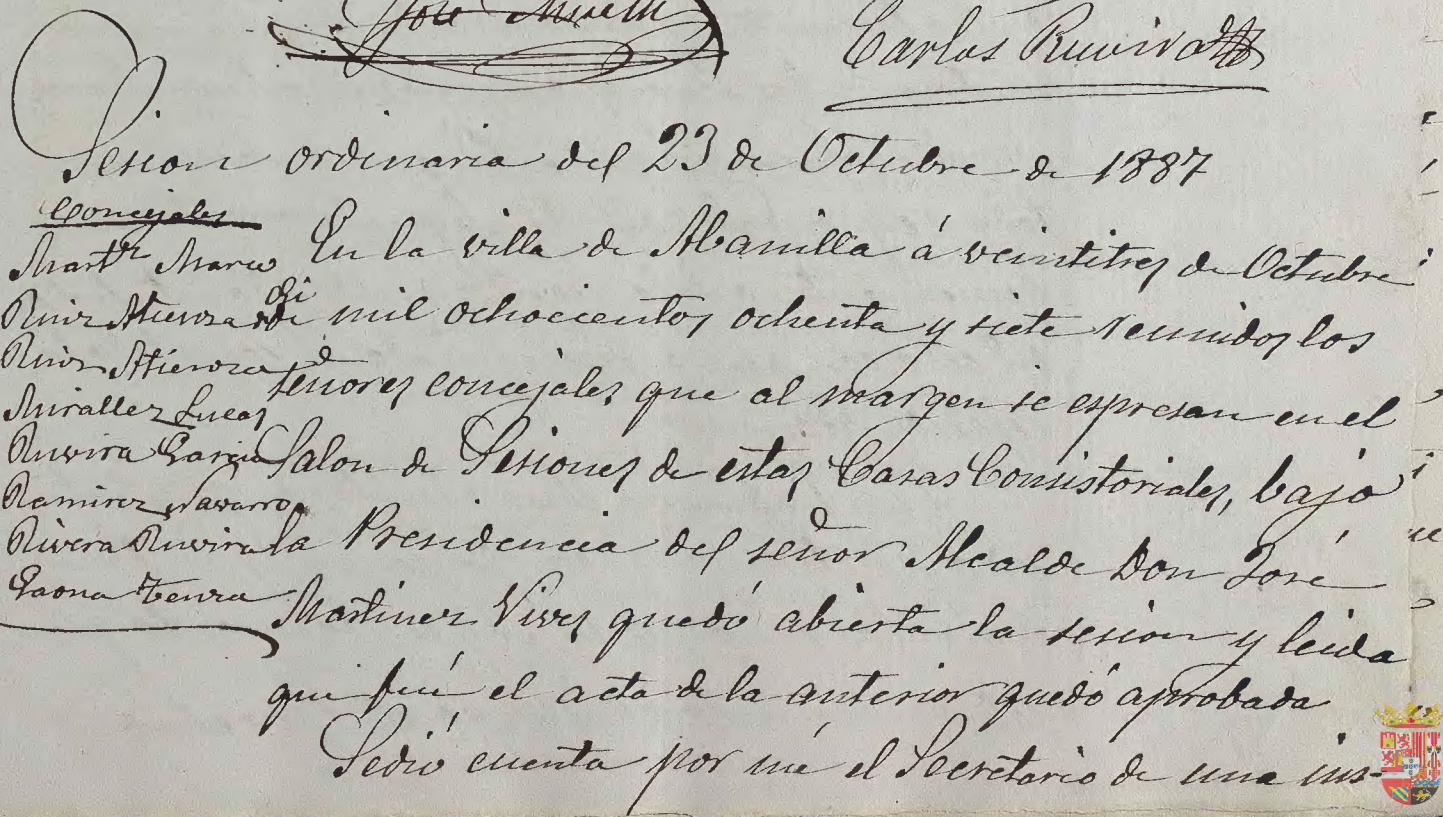 José
Carlos Ruvira
Sesion ordinaria del 23 de Octubre de 1887
Concejales
Martz Marco
Ruiz Atienza di
Ruiz Atienza d
Mirallez Lucas
Ruvira Garcia
Ramirez Navarro
Rivera Ruvira
Gaona Tenza
En la villa de Abanilla á veintitres de Octubre
de mil ochocientos ochenta y siete reunidos los
señores concejales que al margen se espresan en el
Salon de Sesiones de estas Casas Consistoriales, bajo
la Presidencia del señor Alcalde Don José
Martinez Vives quedó abierta la sesion y leida
que fué el acta de la anterior quedó aprobada
Se dió cuenta por mé el Secretario de una ins-